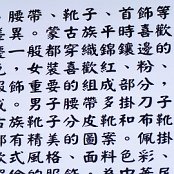 腰帶、靴子、首飾等
差異。蒙古族平時喜歡
一般都穿織錦鑲邊的
色，女裝喜歡紅、粉、
服飾重要的組成部分，
成。男子腰帶多掛刀子
古族靴子分皮靴和布靴
都有精美的圖案。佩掛
款式風格、面料色彩、